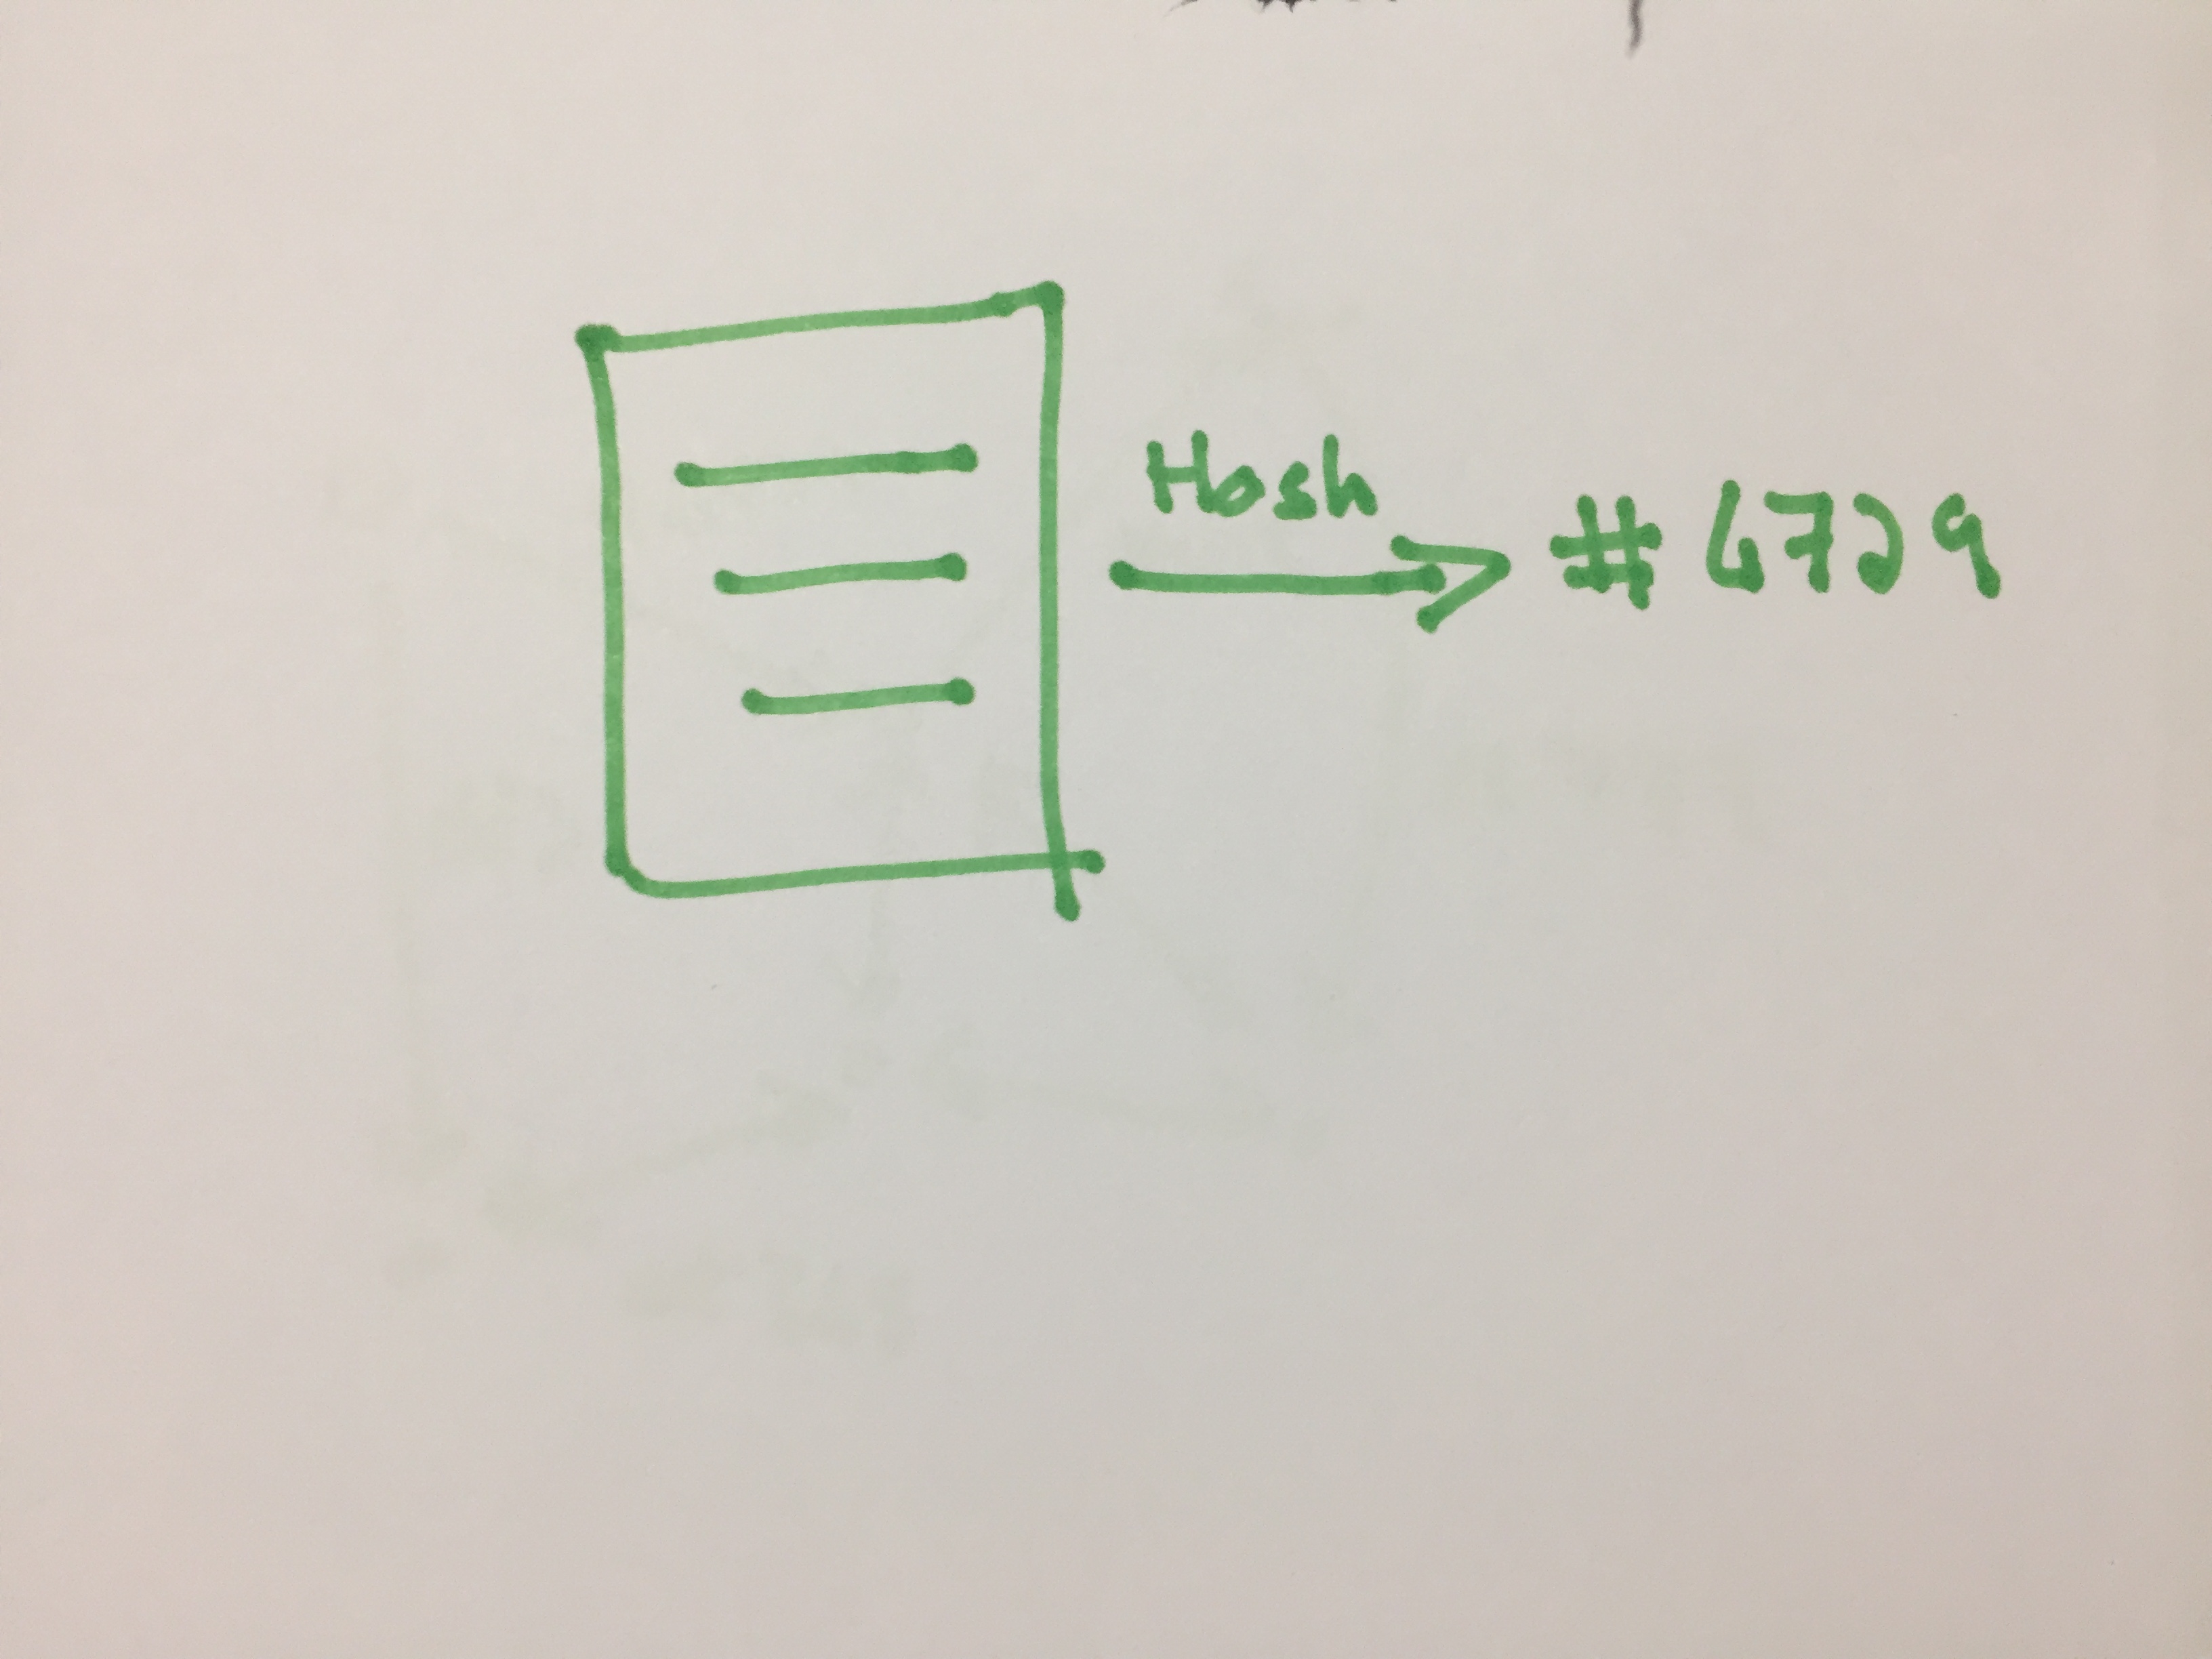 Hash
# 4729